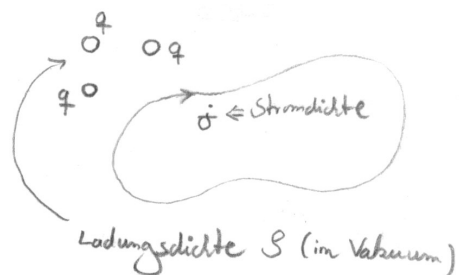 q
q
q
j ⇐ Stromdichte
Ladungsdichte ρ (im Vakuum)